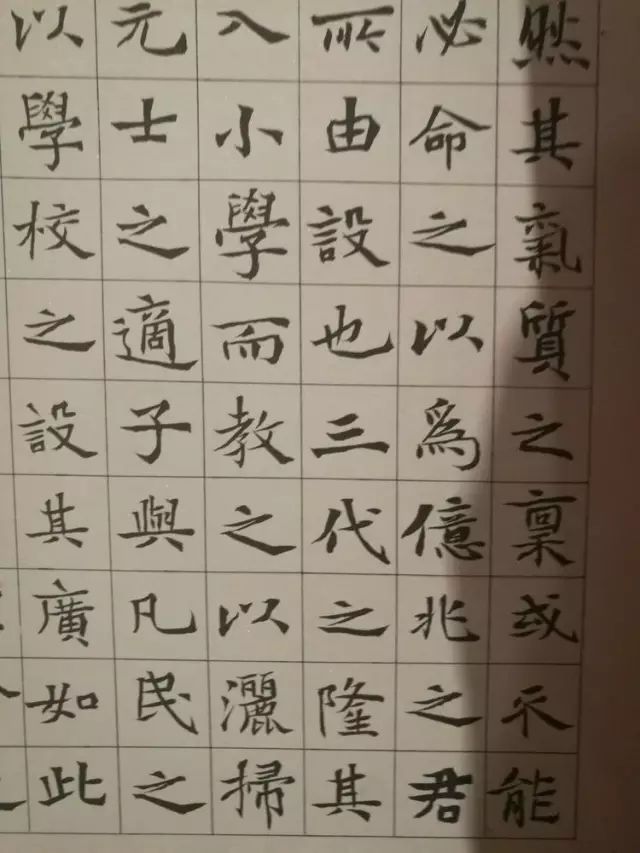 然其氣質之稟或不能
必命之以為億兆之君
所由設也三代之隆其
八小學而教之以灑掃
元士之適子與凡民之
以學校之設其廣如此